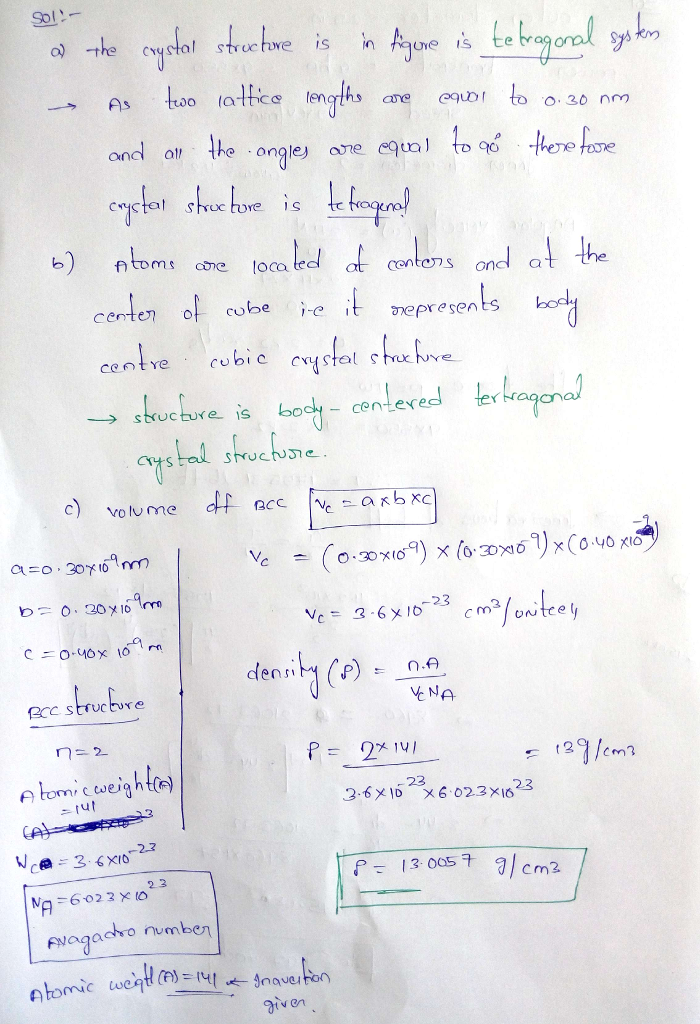 Sol:-
a) the crystal structure is in figure is tetragonal system
→ As two lattice lengths are equal to 0.30 nm
and all the angles are equal to 90° therefore
crystal structure is tetragonal
b) Atoms are located at centers and at the
center of cube i-e it represents body
centre cubic crystal structure
→ structure is body-centered tertragonal
crystal structure.
c) volume off BCC Vc = a×b×c
a=0.30×10⁻⁹ m
b=0.30×10⁻⁹ m
c=0.40×10⁻⁹ m
BCC structure
n=2
Atomic weight(A)
=141
Vc = 3.6×10⁻²³
NA=6.023×10²³
Avagadro number
Atomic weight (A)=141 ← given
Vc = (0.30×10⁻⁹) × (0.30×10⁻⁹) × (0.40×10⁻⁹)
Vc = 3.6×10⁻²³ cm³/unitcell
density (ρ) = n.A / VcNA
ρ = 2×141 / 3.6×10⁻²³×6.023×10²³ = 13g/cm3
ρ = 13.0057 g/cm3